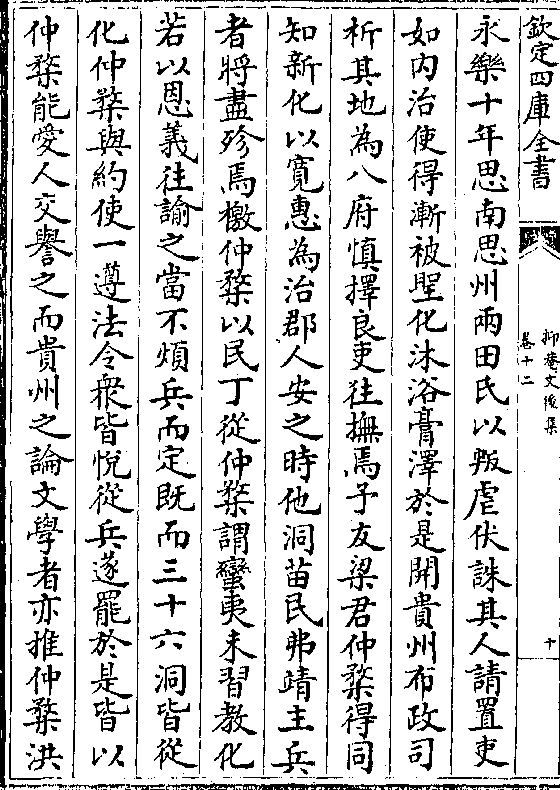 欽定四庫全書
抑菴文後集
卷十二
十
永樂十年思南思州兩田氏以叛虐伏誅其人請置吏
如内治使得漸被聖化沐浴膏澤於是開貴州布政司
析其地為八府慎擇良吏往撫焉予友梁君仲棻得同
知新化以寛惠為治郡人安之時他洞苗民弗靖主兵
者將盡殄焉檄仲棻以民丁從仲棻謂蠻夷未習教化
若以恩義往諭之當不煩兵而定既而三十六洞皆從
化仲棻與約使一遵法令衆皆悅從兵遂罷於是皆以
仲棻能愛人交譽之而貴州之論文學者亦推仲棻洪